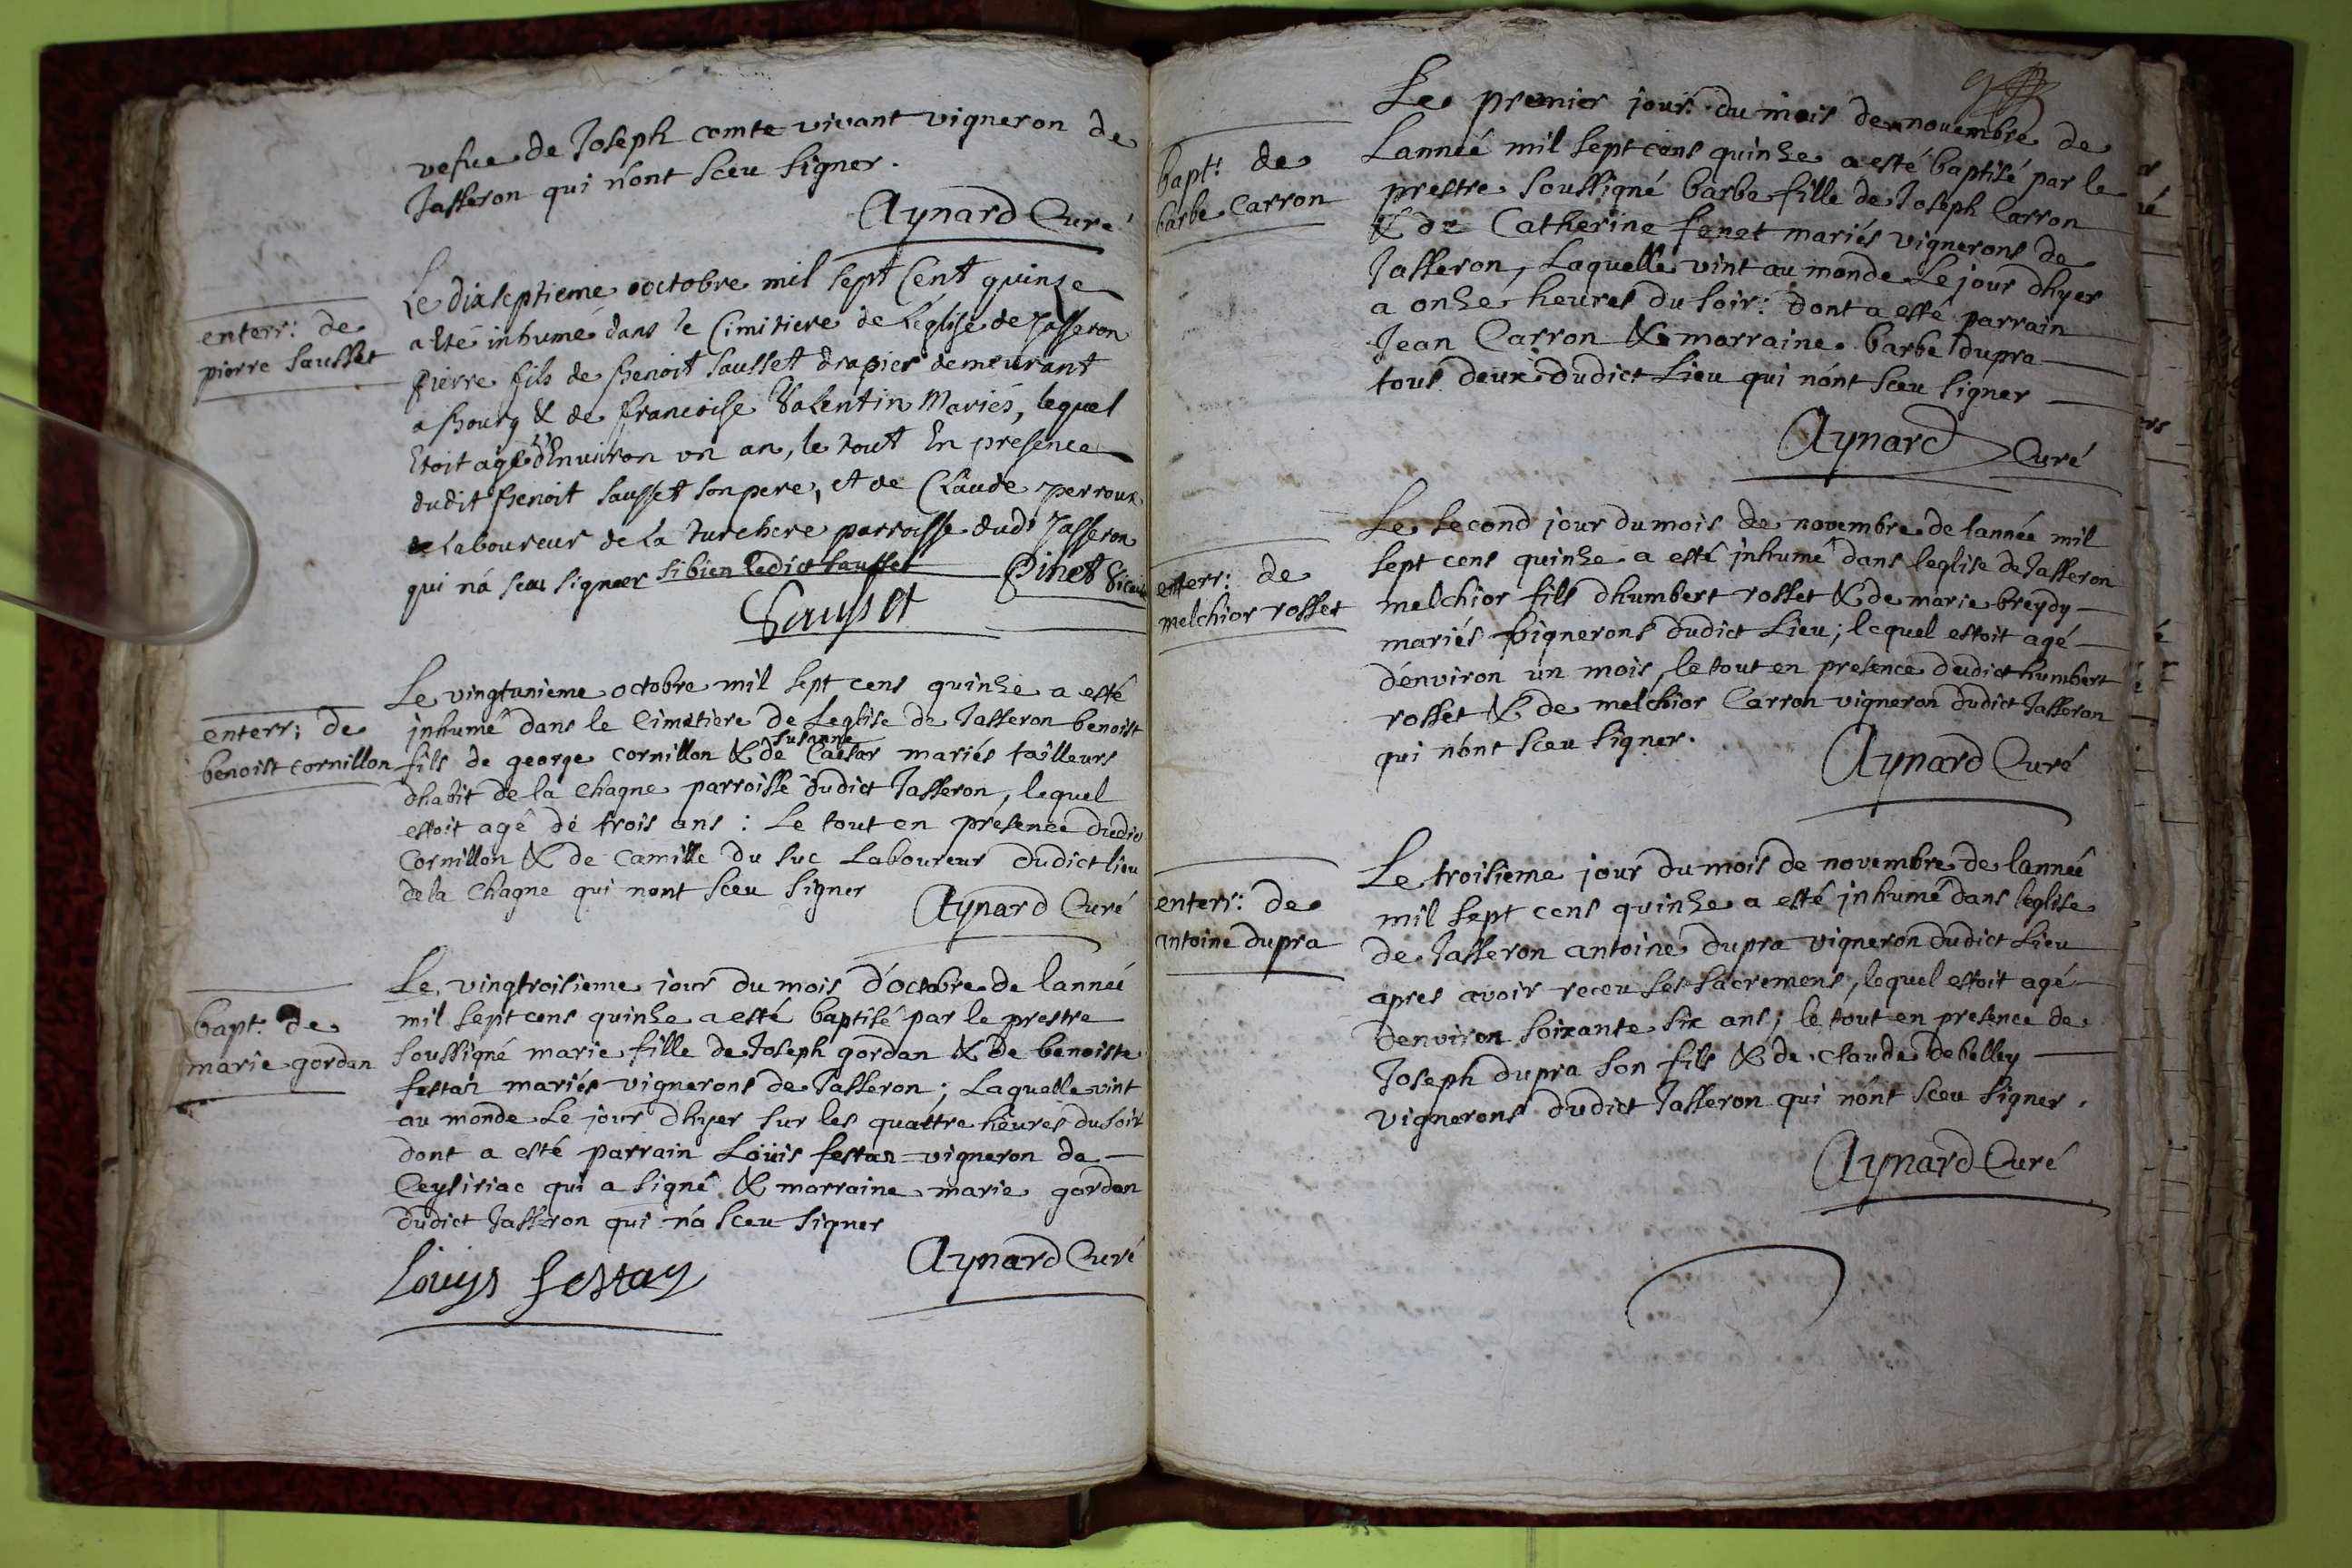 vefue de Joseph comte vivant vigneron de
Jasseron qui n'ont sceu signer.
Aynard Curé
enterr: de
pierre sausset
Le dixseptieme octobre mil sept Cent quinze
a été inhumé dans le Cimitiere de L'eglise de Jasseron
pierre fils de Benoit Sausset drapier demeurant
a Bourg & de francoise Valentin Mariés, lequel
Etoit agé d'Environ un an, le tout En presence
dudit Benoit sausset son pere, et de Claude perroux
Laboureur de La turchere parroisse dudt Jasseron
qui n'a sceu signer si bien ledict sausset
Pinet Vicaire
Sausset
enterr: de
benoist cornillon
Le vingtunieme octobre mil sept cens quinze a esté
inhumé dans le Cimetiere de Leglise de Jasseron benoist
fils de george cornillon & de susanne Caesar mariés tailleurs
dhabit de la chagne parroisse dudict Jasseron, lequel
estoit agé de trois ans : Le tout en présence dudict
Cornillon & de Camille du suc Laboureur dudict lieu
de la Chagne qui nont sceu signer
Aynard Curé
bapt: de
marie gordan
Le vingtroisieme jour du mois d'octobre de lannée
mil sept cens quinze a esté baptisé par le prestre
soussigné marie fille de Joseph gordan & de benoiste
festaz mariés vignerons de Jasseron ; Laquelle vint
au monde Le jour dhyer sur les quattre heures du soir
dont a esté parrain Loüis festaz vigneron de
Ceysiriac qui a signé & marraine marie gordan
dudict Jasseron qui n'a sceu signer
Aynard Curé
Louys festaz
bapt: de
barbe Carron
Le premier jour du mois de novembre de
Lannée mil sept cens quinze a esté baptisé par le
prestre soussigné barbe fille de Joseph Carron
& de Catherine fenet mariés vignerons de
Jasseron, Laquelle vint au monde Le jour dhyer
a onze heures du soir: dont a esté parrain
Jean Carron & marraine barbe dupra
tous deux dudict Lieu qui n'ont sceu signer
Aynard Curé
enterr: de
melchior rosset
Le second jour du mois de novembre de lannée mil
sept cens quinze a esté inhumé dans leglise de Jasseron
melchior fils dhumbert rosset & de marie breydy
mariés vignerons dudict Lieu ; lequel estoit agé
d'environ un mois, le tout en presence dudict humbert
rosset & de melchior Carron vigneron dudict Jasseron
qui n'ont sceu signer.
Aynard Curé
enterr: de
antoine dupra
Le troisieme jour du mois de novembre de lannée
mil sept cens quinze a esté inhumé dans leglise
de Jasseron antoine dupra vigneron dudict Lieu
apres avoir receu ses sacremens, lequel estoit agé
denviron soixante six ans ; le tout en presence de
Joseph dupra son fils & de claude debelley
vignerons dudict Jasseron qui n'ont sceu signer.
Aynard Curé